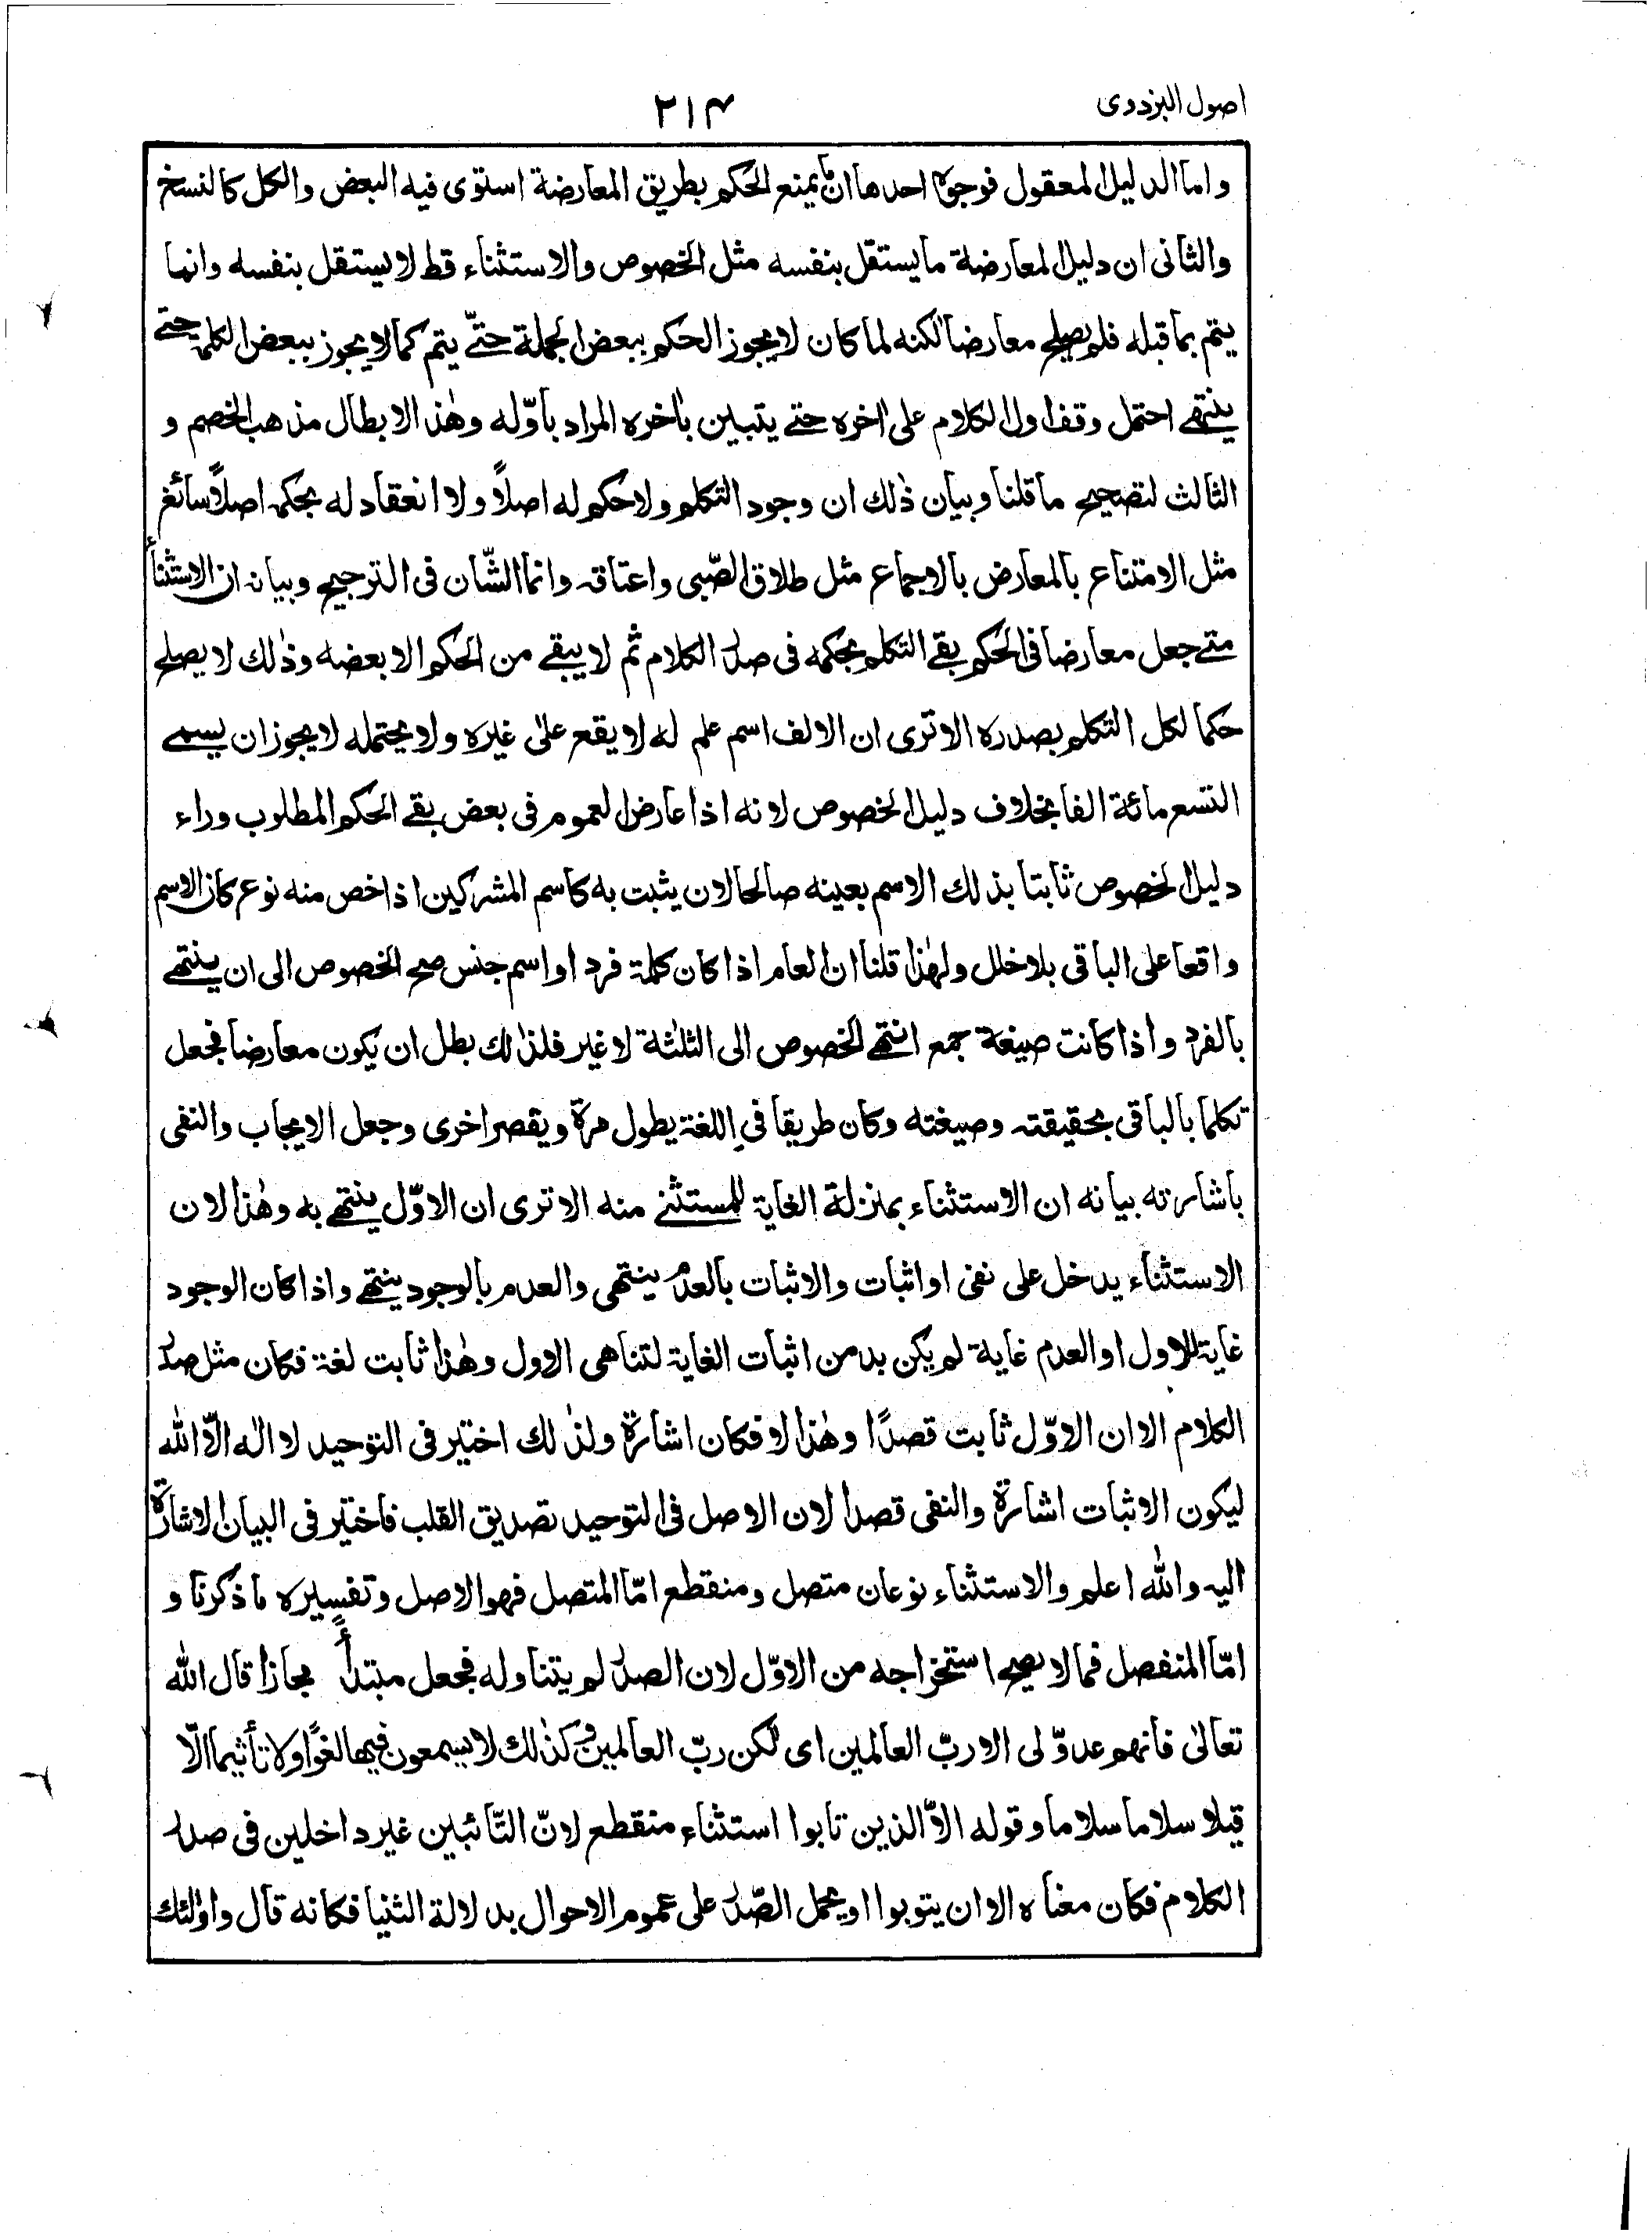 اصول البزدوى
٢١٤
واما الدليل المعقول فوجوه احدها ان ما يمنع الحكم بطريق المعارضة استوى فيه البعض والكل كالنسخ
والثانى ان دليل المعارضة ما يستقل بنفسه مثل الخصوص والاستثناء قط لا يستقل بنفسه وانما
يتم بما قبله فلم يصلح معارضا لكنه لما كان لا يجوز الحكم ببعض الجملة حتّى يتم كما لا يجوز ببعض الكلمة حتى
ينتهى احتمل وقف اول الكلام على اٰخره حتى يتبين باٰخره المراد باوّله وهٰذا الابطال مذهب الخصم و
الثالث لتصحيح ما قلنا وبيان ذٰلك ان وجود التكلم ولا حكم له اصلاً ولا انعقاد له بحكمه اصلاً سائغ
مثل الامتناع بالمعارض بالاجماع مثل طلاق الصّبى واعتاقه وانما الشّان فى الترجيح وبيانه ان الاستثناء
متى جعل معارضا فى الحكم بقى التكلم بحكمه فى صدر الكلام ثم لا يبقى من الحكم الا بعضه وذٰلك لا يصلح
حكما لكل التكلم بصدره الا ترى ان الالف اسم علم له لا يقع علىٰ غيره ولا يحتمله لا يجوز ان يسمى
التسع مائة الفا بخلاف دليل الخصوص لانه اذا عارض العموم فى بعض بقى الحكم المطلوب وراء
دليل الخصوص ثابتا بذلك الاسم بعينه صالحا لان يثبت به كاسم المشركين اذا خص منه نوع كان الاسم
واقعا على الباقى بلا خلل ولهٰذا قلنا ان العام اذا كان كلمة فرد او اسم جنس صح الخصوص الى ان ينتهى
بالفرد واذا كانت صيغة جمع انتهى الخصوص الى الثلٰثة لا غير فلذٰلك بطل ان يكون معارضا فجعل
تكلما بالباقى بحقيقته وصيغته وكان طريقا فى اللغة يطول مرة ويقصر اخرى وجعل الايجاب والنفى
باشارته بيانه ان الاستثناء بمنزلة الغاية للمستثنى منه الا ترى ان الاوّل ينتهى به وهٰذا لان
الاستثناء يدخل على نفى او اثبات والاثبات بالعدم ينتهى والعدم بالوجود ينتهى واذا كان الوجود
غاية للاول او العدم غاية لم يكن بد من اثبات الغاية لتناهى الاول وهٰذا ثابت لغة فكان مثل صدر
الكلام الا ان الاوّل ثابت قصدًا وهٰذا لا فكان اشارة ولذٰلك اختير فى التوحيد لا اله الّا الله
ليكون الاثبات اشارة والنفى قصدا لان الاصل فى التوحيد تصديق القلب فاختير فى البيان الاشارة
اليه والله اعلم والاستثناء نوعان متصل ومنقطع امّا المتصل فهو الاصل وتفسيره ما ذكرنا و
امّا المنفصل فما لا يصح استخراجه من الاوّل لان الصدر لم يتناوله فجعل مبتدأ مجازا قال الله
تعالىٰ فانهم عدوّ لى الا ربّ العالمين اى لكن ربّ العالمين وكذٰلك لا يسمعون فيها لغوًا ولا تأثيما الّا
قيلا سلاما سلاما وقوله الاّ الذين تابوا استثناء منقطع لانّ التّائبين غير داخلين فى صدر
الكلام فكان معناه الا ان يتوبوا او يحمل الصّدر على عموم الاحوال بدلالة الثنيا فكانه قال واولٰئك